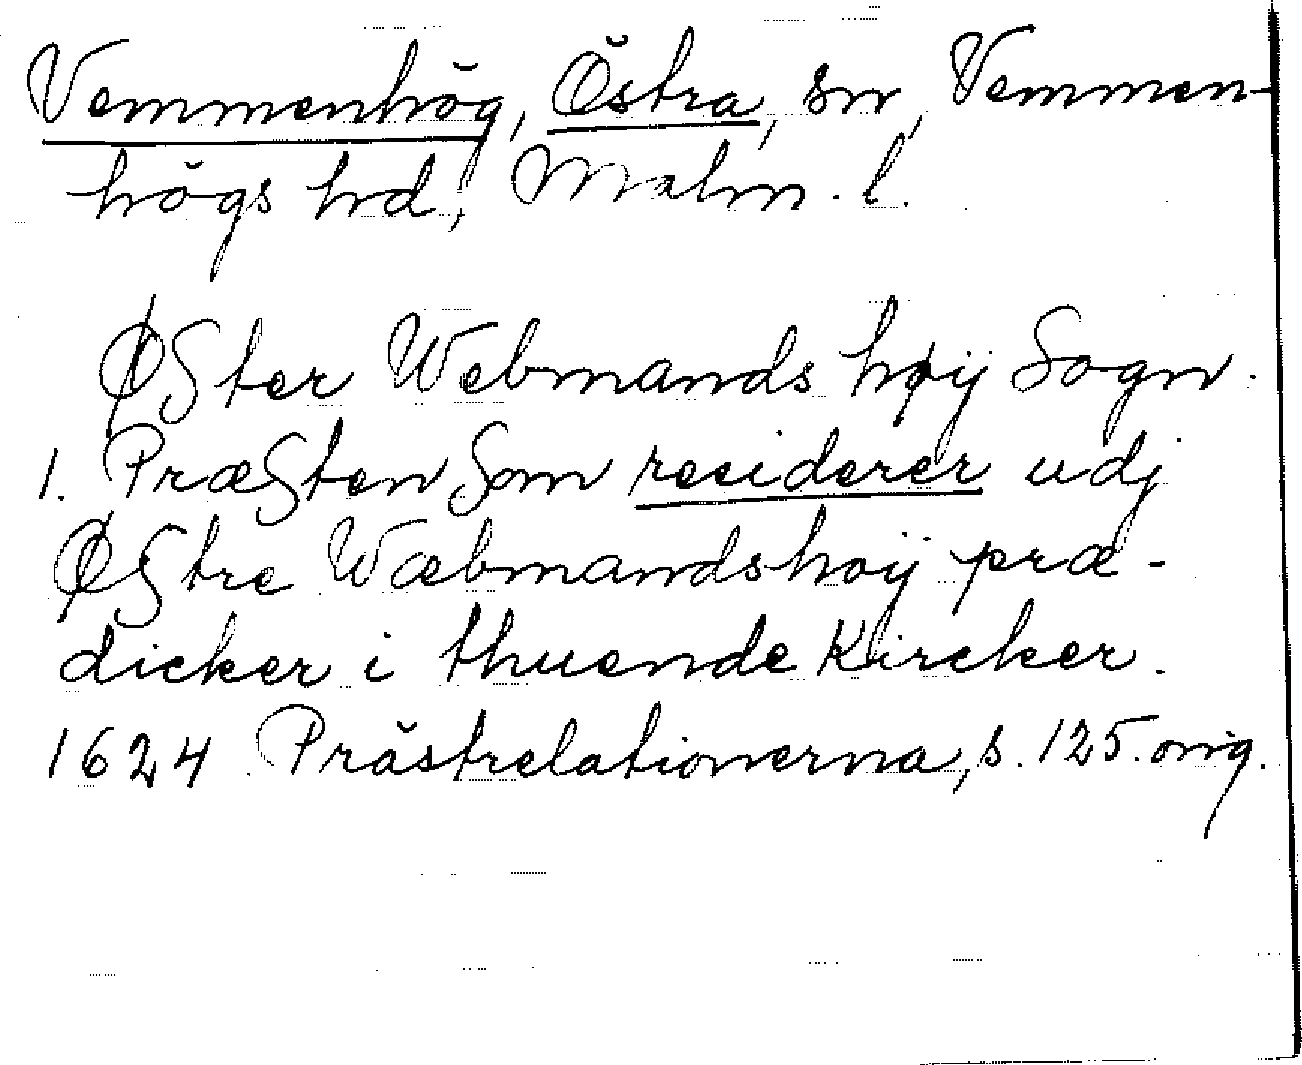 Vemmenhög, Östra, sn, Vemmen-
högs hd, Malm. l.
ØSter Webmands høÿ Sogn.
1. PræSten Som residerer udj
ØStre Wæbmandshoÿ præ-
dicker i thuende Kircker.
1624 Prästrelationerna, s. 125. orig.